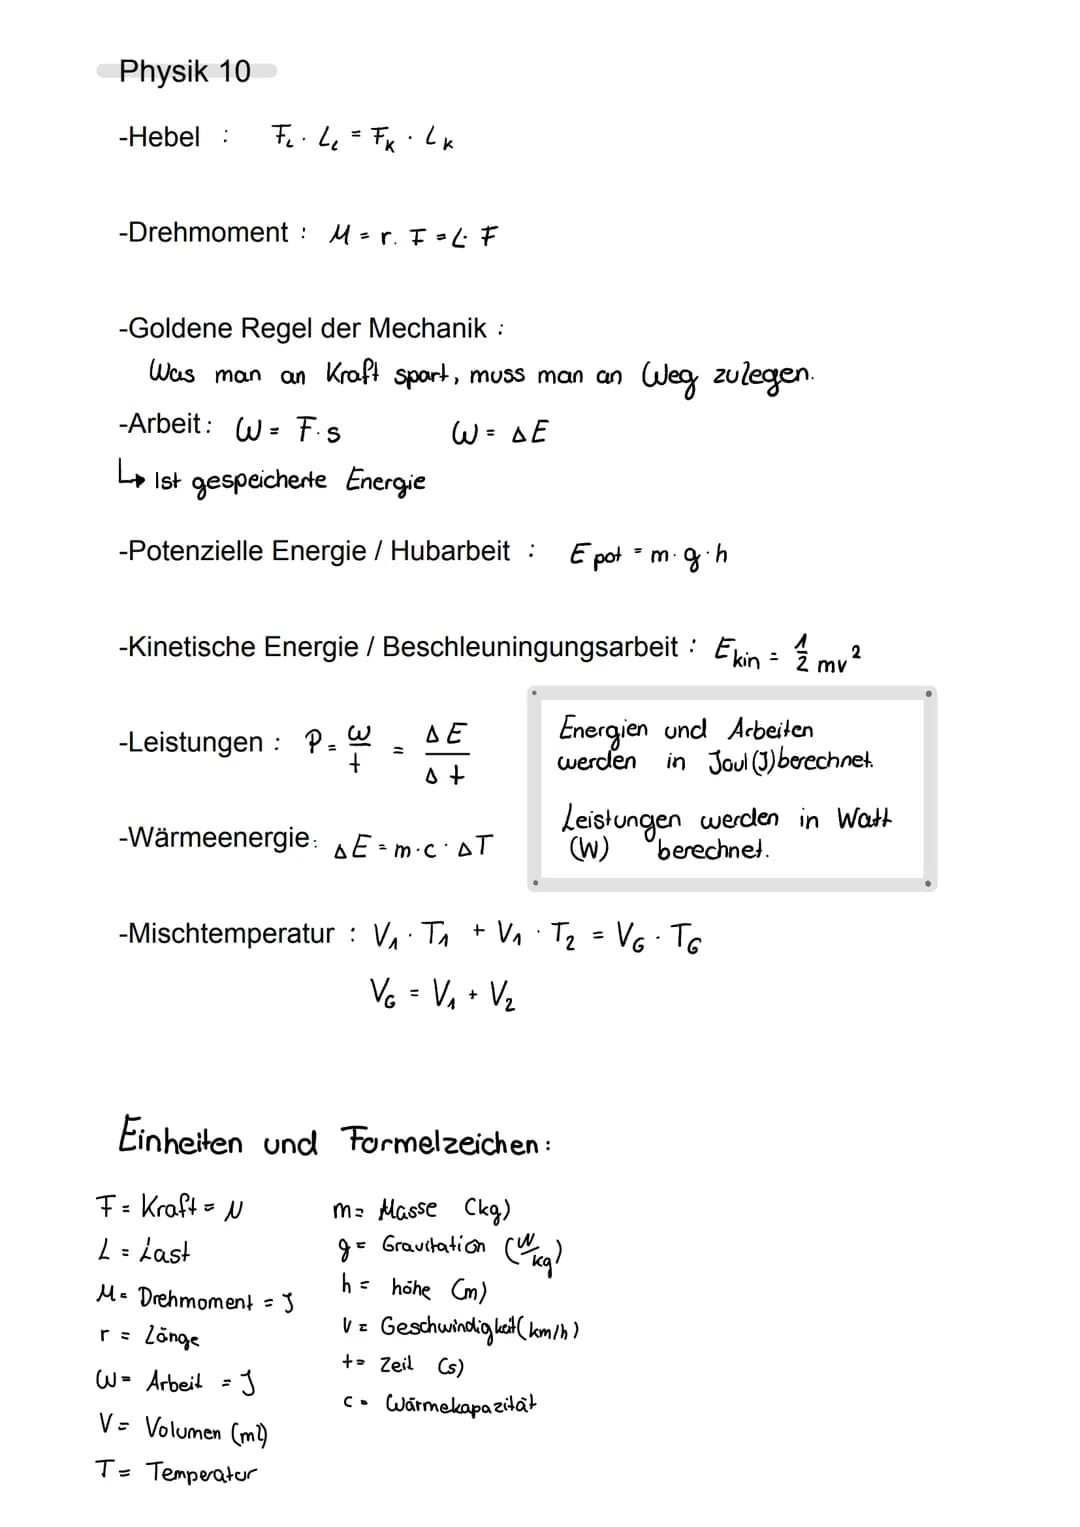 Physik 10
-Hebel : F_L · L_L = F_K · L_K
-Drehmoment : M = r · F = L · F
-Goldene Regel der Mechanik :
Was man an Kraft spart, muss man an Weg zulegen.
-Arbeit : W = F · s W = ΔE
↳ Ist gespeicherte Energie
-Potenzielle Energie / Hubarbeit : E pot = m · g · h
-Kinetische Energie / Beschleuningungsarbeit : E kin = 1/2 mv²
-Leistungen : P = W/t = ΔE/Δt
Energien und Arbeiten
werden in Joul (J) berechnet.
Leistungen werden in Watt
(W) berechnet.
-Wärmeenergie : ΔE = m · c · ΔT
-Mischtemperatur : V₁ · T₁ + V₁ · T₂ = V_G · T_G
V_G = V₁ + V₂
Einheiten und Formelzeichen :
F = Kraft = N
L = Last
M = Drehmoment = J
r = Länge
W = Arbeit = J
V = Volumen
T = Temperatur
m = Masse (kg)
g = Gravitation (N/kg)
h = höhe (m)
V = Geschwindigkeit (km/h)
t = Zeil (s)
c = Wärmekapazität